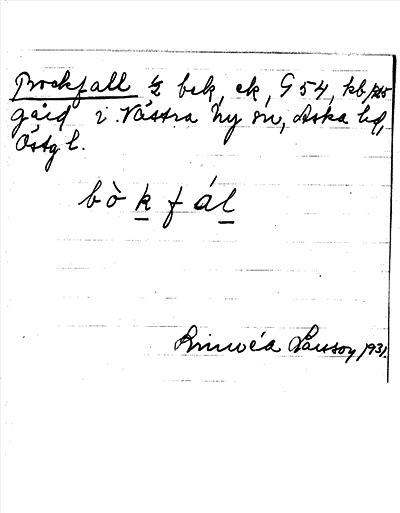 Brockfall ½ bek, ek, G 54, kb,
gård i Västra Ny sn, Aska hd,
Östg l.
bò k f ál
Linnéa Larsson, 1931.